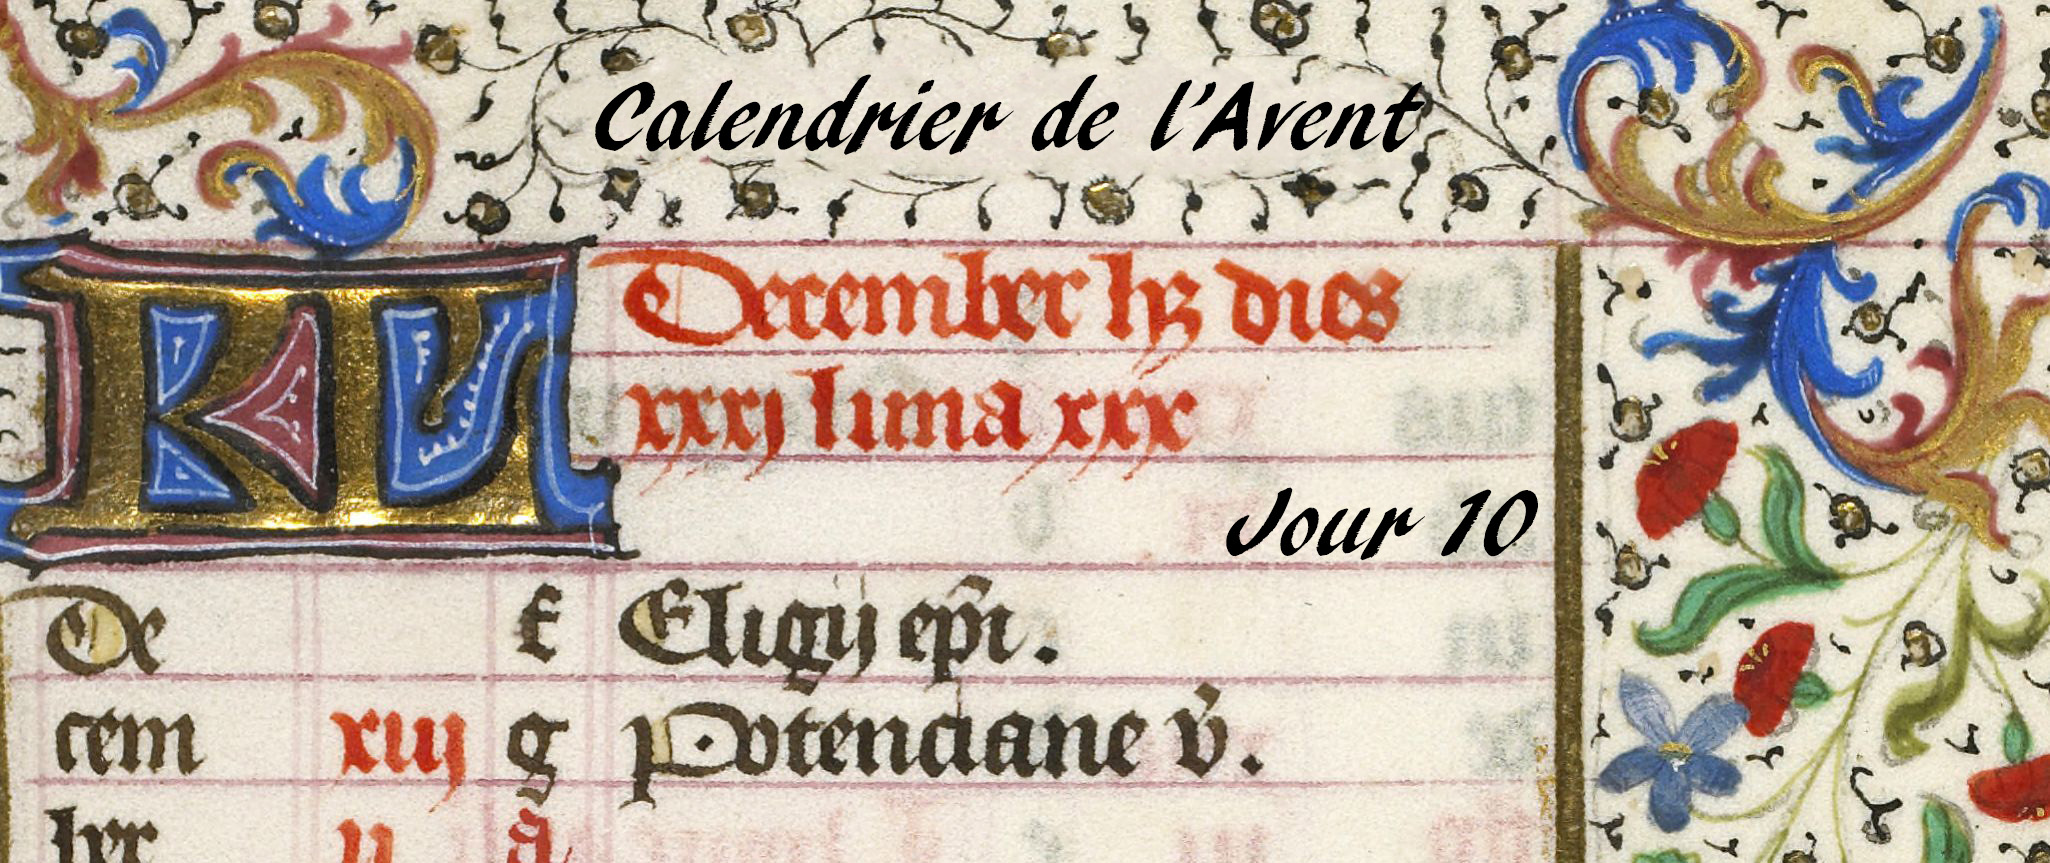 Calendrier de l'Avent
KL December hꝫ dies
xxxj luna xxx
Jour 10
De f Eligij ep̄i.
cem xiij g Potenciane v̄.
bri ij a